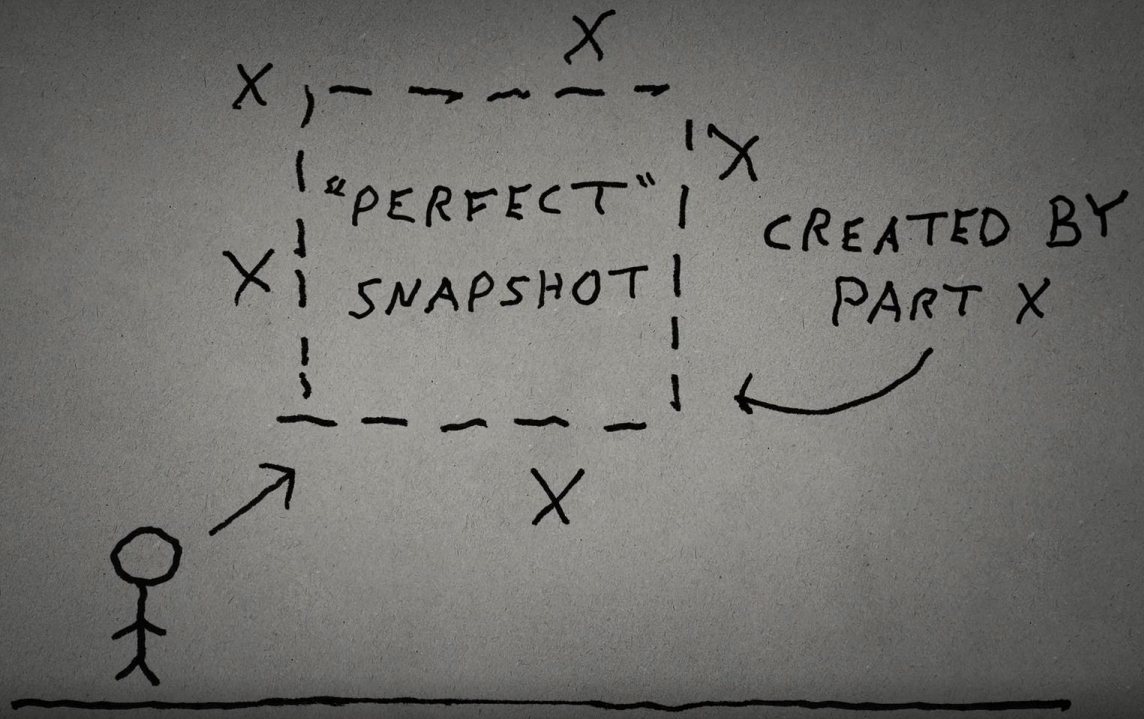 X
X
X
"PERFECT"
SNAPSHOT
X
X
CREATED BY
PART X